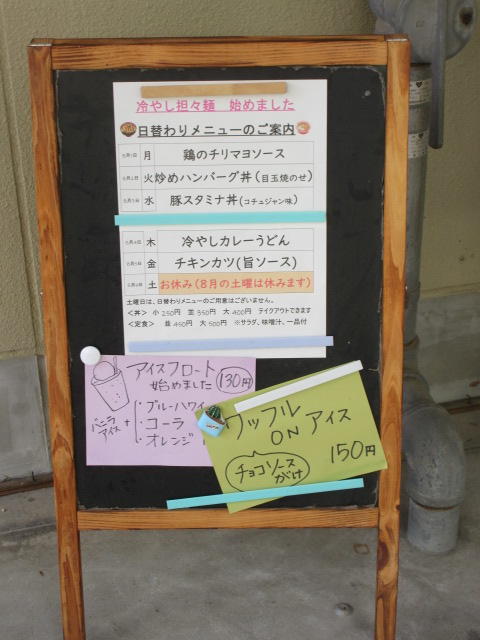 冷やし担々麺 始めました
日替わりメニューのご案内
8月1日 月 鶏のチリマヨソース
8月2日 火 炒めハンバーグ丼(目玉焼のせ)
8月3日 水 豚スタミナ丼(コチュジャン味)
8月4日 木 冷やしカレーうどん
8月5日 金 チキンカツ(旨ソース)
8月6日 土 お休み(8月の土曜は休みます)
土曜日は、日替わりメニューのご用意はございません。
<丼> 小 250円 並 350円 大 400円 テイクアウトできます
<定食> 並 450円 大 500円 ※サラダ、味噌汁、一品付
アイスフロート
始めました 130円
バニラアイス + ・ブルーハワイ
・コーラ
・オレンジ
ワッフル
ON アイス
チョコソース
がけ
150円